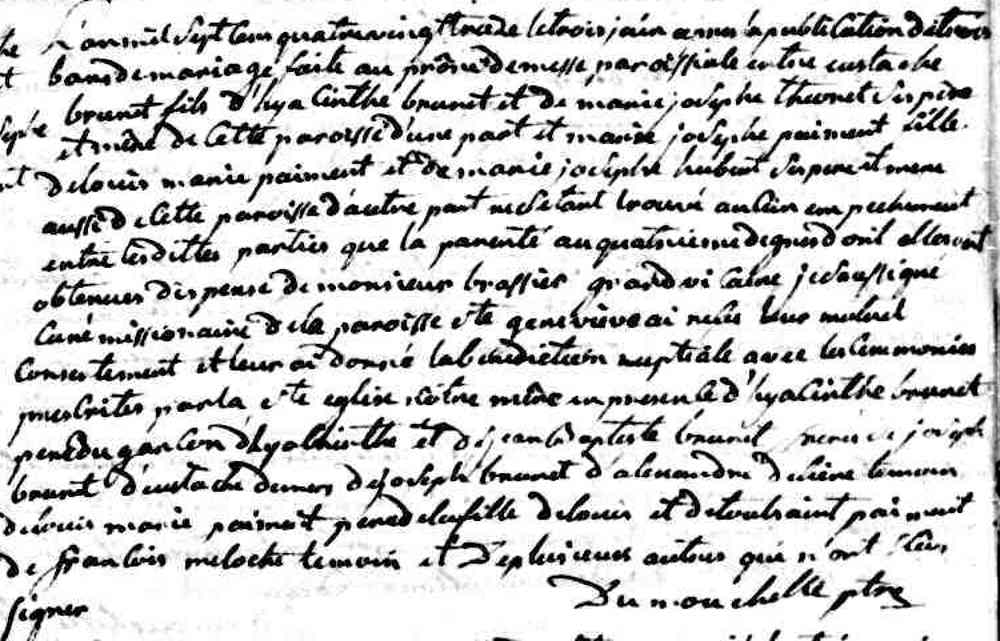 L'an mil sept cens quatrevingttreize le trois juin apres la publication de trois
bans de mariage faite au prône de messe paroissiale entre eustache
brunet fils d'hyacinthe brunet et de marie josephe theoret ses père
et mère de cette paroisse d'une part et marie josephe paiment fille
de louis marie paiment et de marie josephe hubert ses pere et mere
aussi de cette paroisse d'autre part ne s'etant trouvé aucun empechement
entre lesdittes parties que la parenté au quatrieme degres dont elles ont
obtenues dispense de monsieur brassier grand vicaire je soussigné
curé missionaire de la paroisse ste genevieve ai recus leur mutuel
consentement et leur ai donné la benediction nuptiale avec les ceremonies
prescrites par la ste eglise nôtre mère en presence d'hyacinthe brunet
pere du garcon d'hyacinthe et de jean baptiste brunet freres de joseph
brunet d'eustache demers de joseph brunet d'alexandre temoin
de louis marie paiment pere de la fille de louis et de toussaint paiment
de francois meloche temoin et de plusieurs autres qui n'ont sceu
signer
Dumouchelle ptre